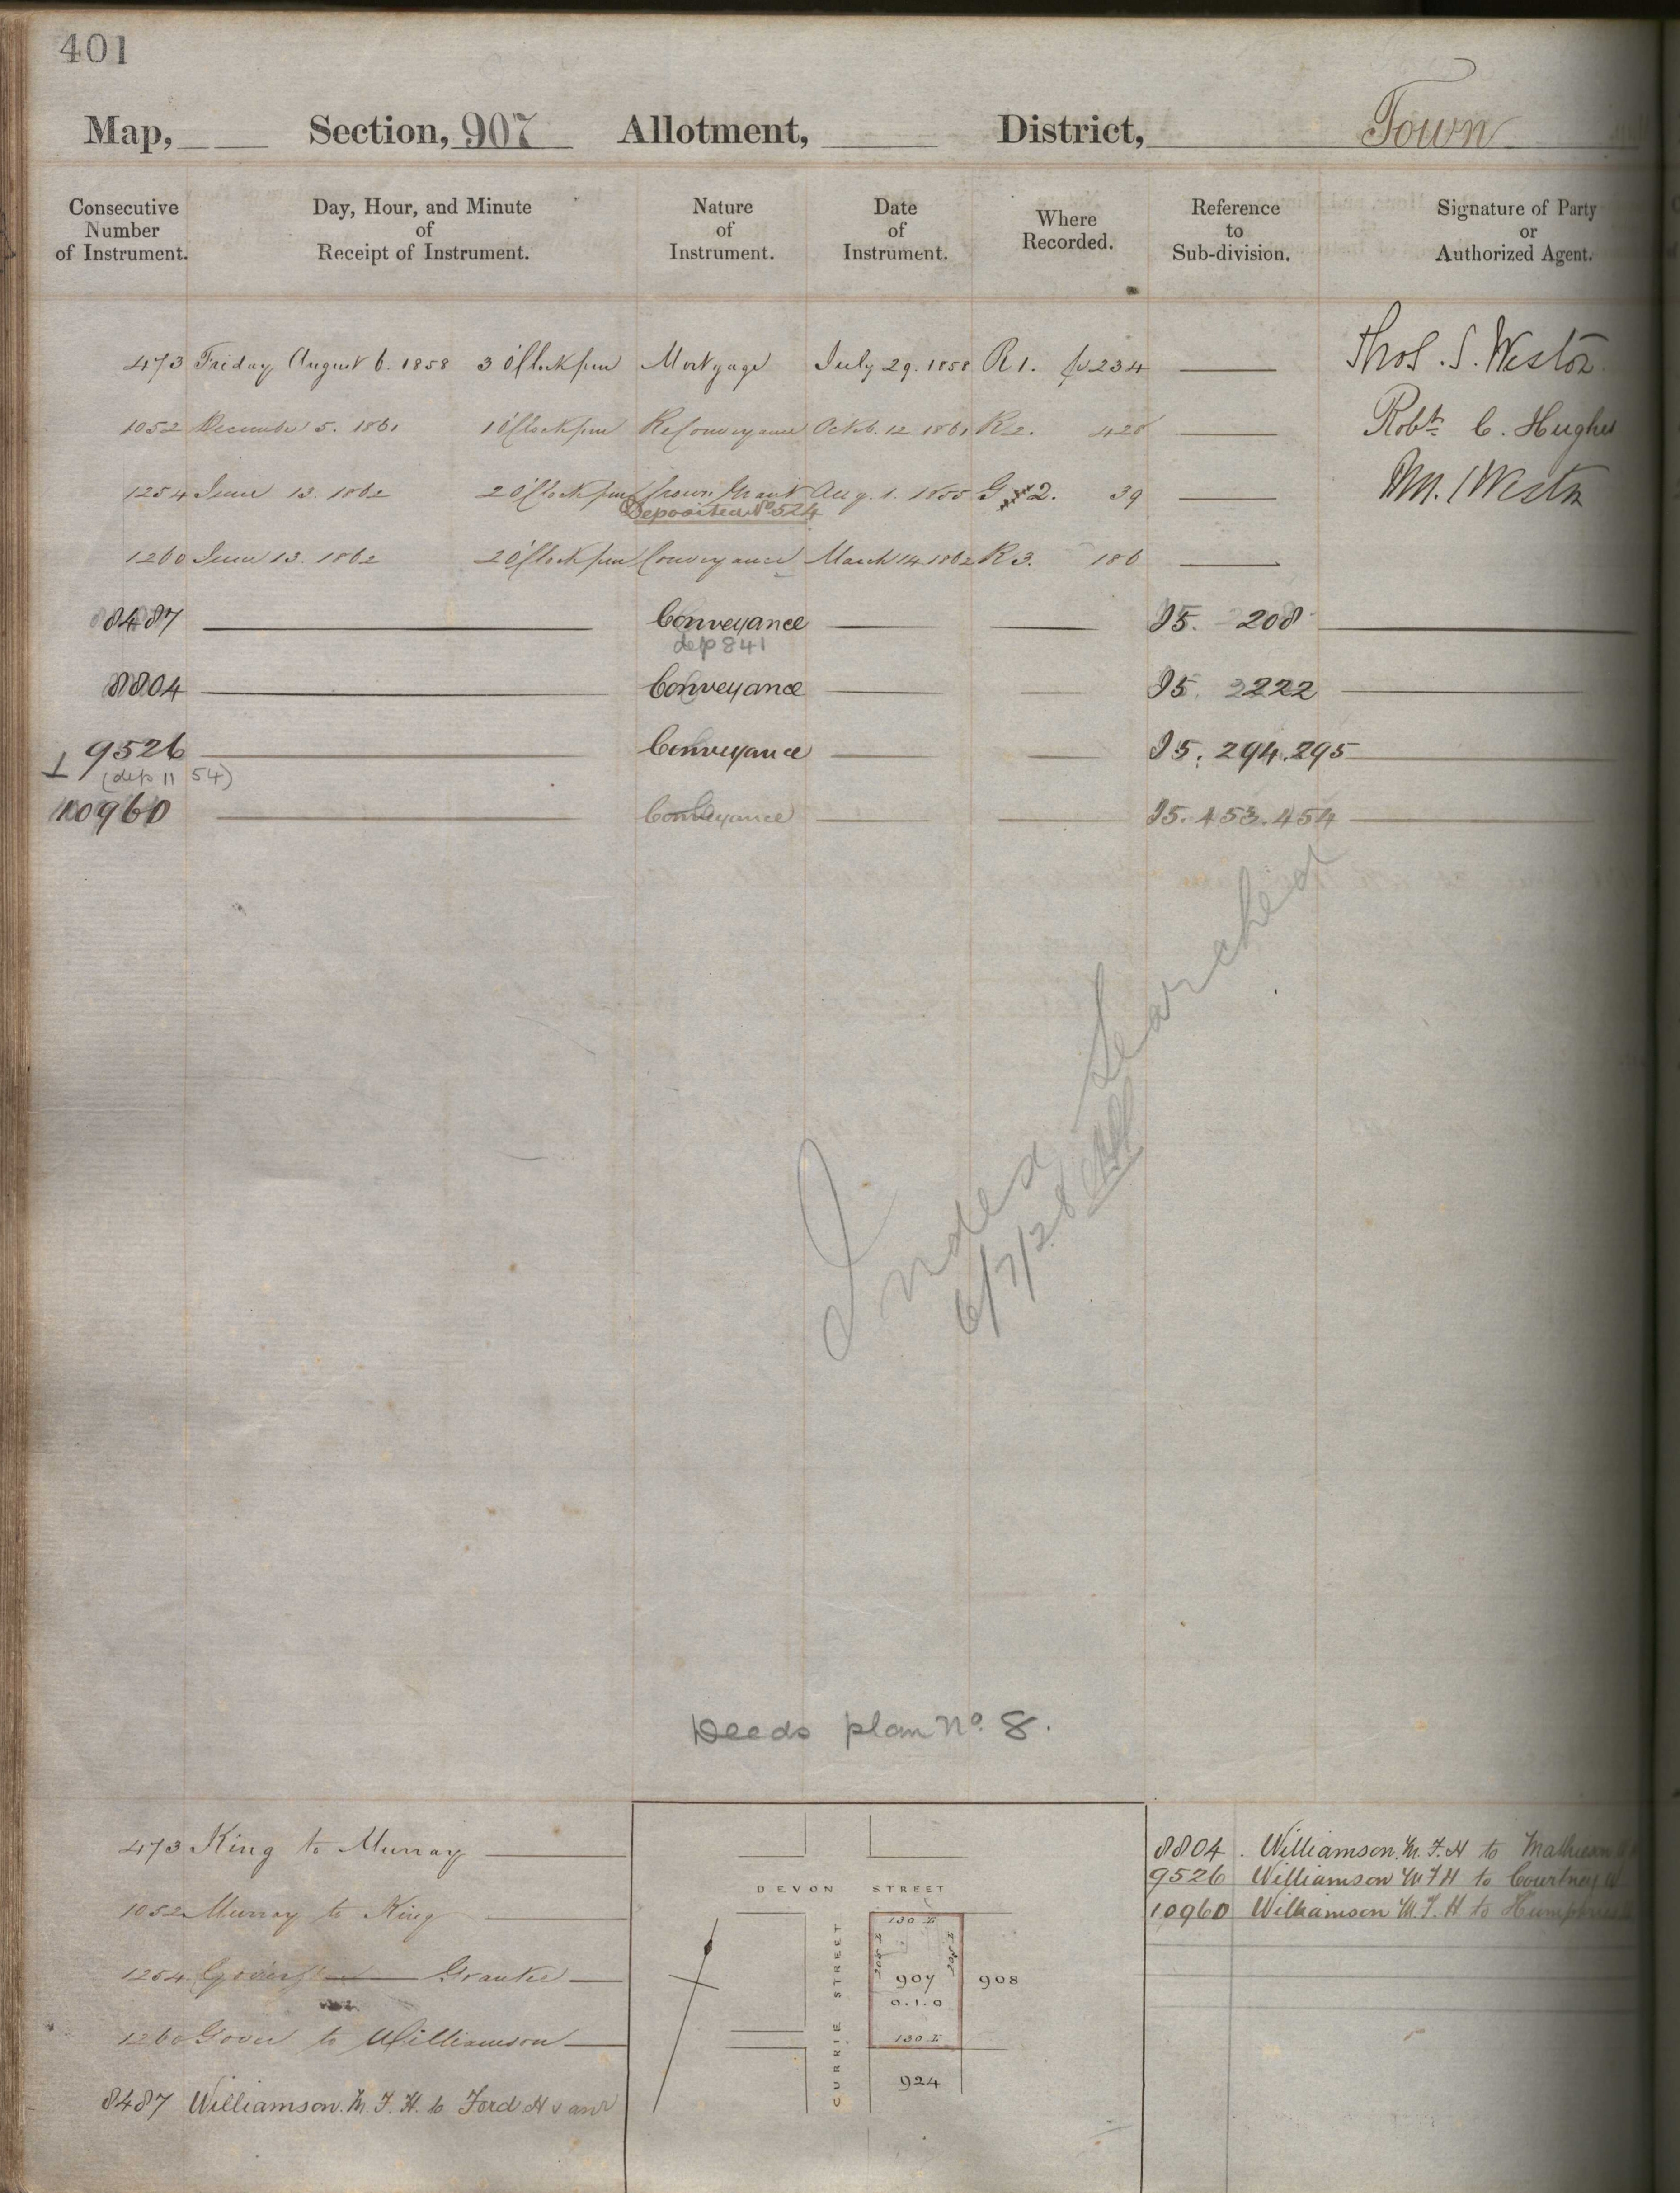 401
Map, Section, 907 Allotment, District, Town
Consecutive Number of Instrument.
Day, Hour, and Minute of Receipt of Instrument.
Nature of Instrument.
Date of Instrument.
Where Recorded.
Reference to Sub-division.
Signature of Party or Authorized Agent.
473 Friday August 6. 1858 3 O'Clock pm Mortgage July 29. 1858 R 1. fo 234 Thos. S. Weston
1052 December 5. 1861 1 O'Clock pm ReConveyance Octob. 12 1861 R 2. 428 Robt. C. Hughes
1254 June 13. 1862 2 O'Clock pm Crown Grant Aug. 1. 1855 G 2. 39
Deposited No 524
1260 June 13. 1862 2 O'Clock pm Conveyance March 14 1862 R 3. 186
8487 Conveyance I5. 208
dep 841
8804 Conveyance I5. 222
9526 Conveyance I5. 294.295
(dep 11 54)
10960 Conveyance I5. 453.454
Index Searched
6/7/28
Deeds plan No. 8.
473 King to Murray
1052 Murray to King
1254 Grantee
1260 Gover to Williamson
8487 Williamson. M. F. H. to Ford H
DEVON STREET
CURRIE STREET
130 L
205 L
205 L
907
0.1.0
130 L
908
924
8804. Williamson. M. F. H to Mathieson
9526 Williamson M F H to Courtney W
10960 Williamson M. F. H to